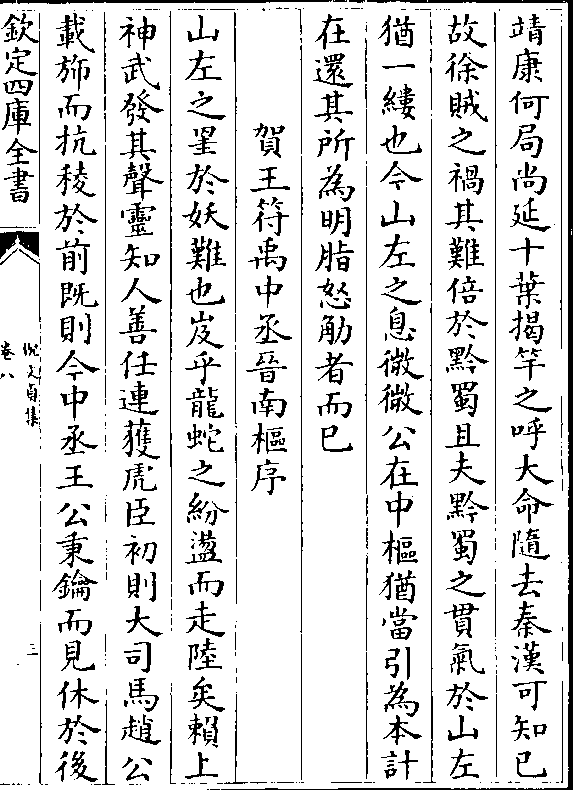 靖康何局尚延十葉揭竿之呼大命隨去秦漢可知已
故徐賊之禍其難倍於黔蜀且夫黔蜀之貫氣於山左
猶一縷也今山左之息微微公在中樞猶當引為本計
在還其所為明脂怒觔者而已
賀王符禹中丞晉南樞序
山左之罣於妖難也岌乎龍蛇之紛盪而走陸矣賴上
神武發其聲靈知人善任連獲虎臣初則大司馬趙公
載斾而抗稜於前既則今中丞王公秉鑰而見休於後
欽定四庫全書
倪文貞集
卷八
三